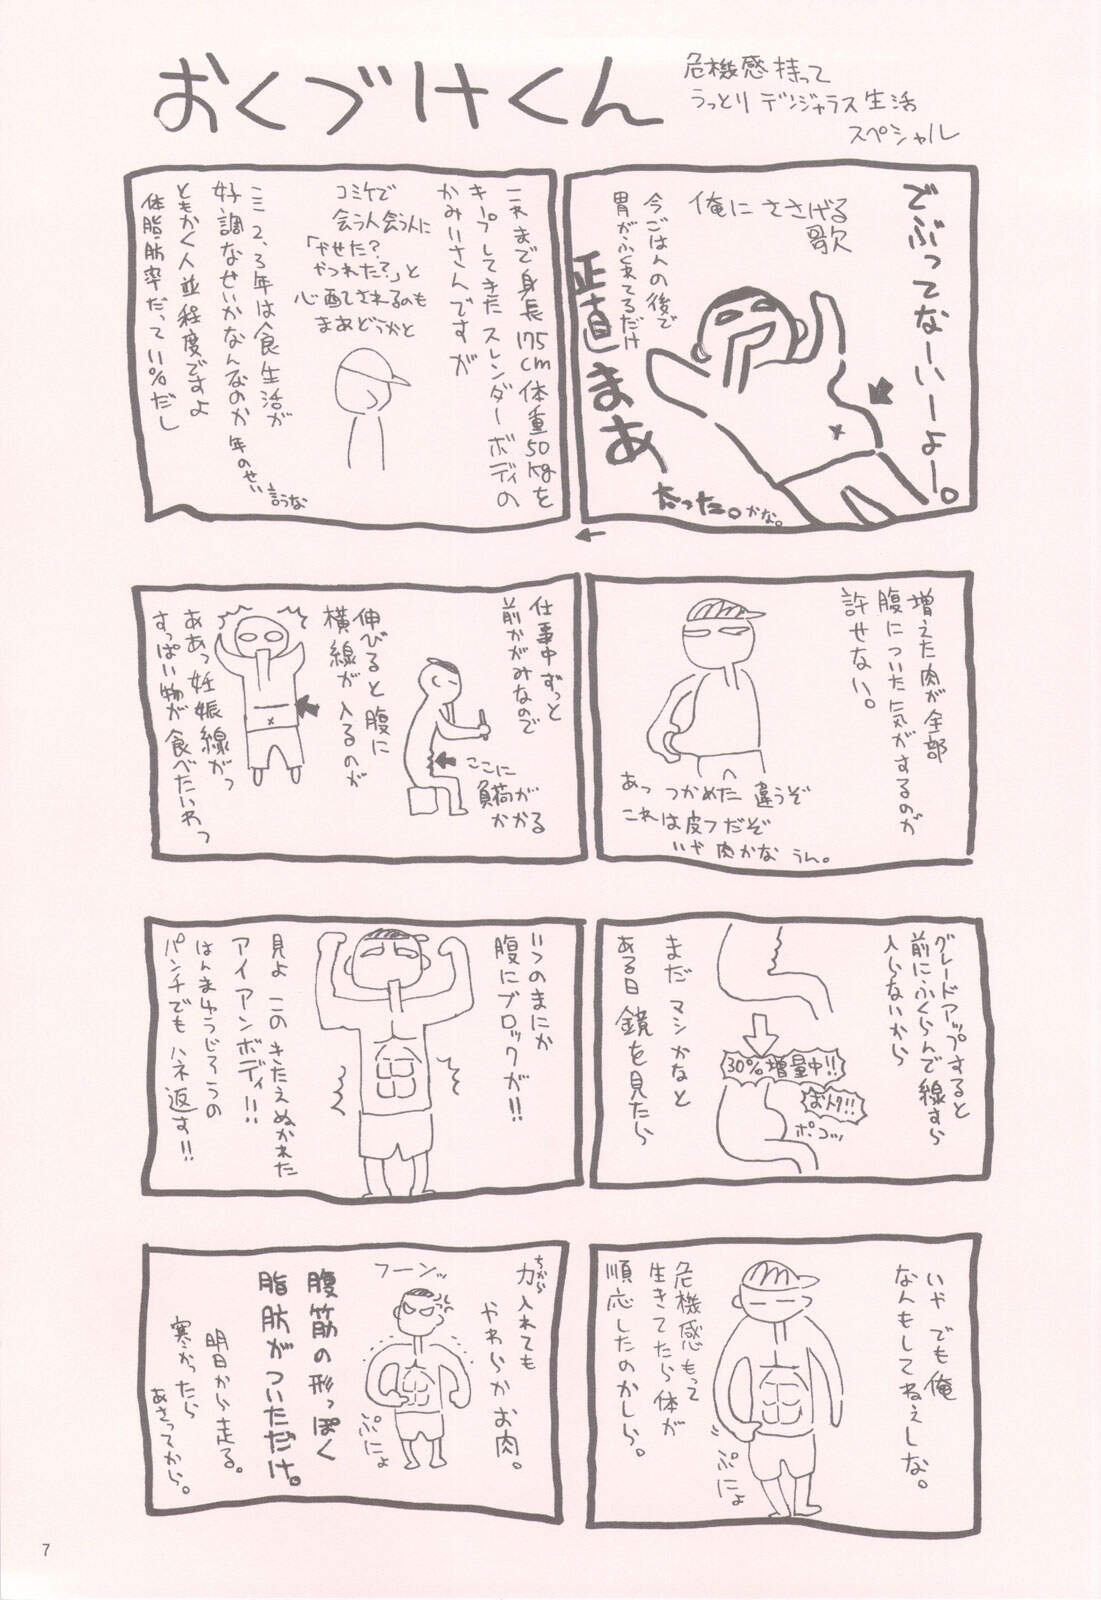 おくづけくん
危機感持って
うっとりデンジャラス生活
スペシャル
でぶってなーいーよー。
俺にささげる
歌
今ごはんの後で
胃がふくれてるだけ
正直まあ
太った。かな。
これまで身長175cm体重50kgを
キープしてきたスレンダーボディの
かみいさんですが
コミケで
会う人会う人に
「やせた?
やつれた?」と
心配されるのも
まあどうかと
ここ2、3年は食生活が
好調なせいかなんなのか年のせい
言うな
ともかく人並程度ですよ
体脂肪率だって11%だし
増えた肉が全部
腹についた気がするのが
許せない。
あっつかめた違うぞ
これは皮フだぞ
いや肉かなうん。
仕事中ずっと
前かがみなので
ここに
負荷が
かかる
伸びると腹に
横線が入るのが
ああっ妊娠線がっ
すっぱい物が食べたいわっ
グレードアップすると
前にふくらんで線すら
入らないから
30%増量中!!
おトク!!
ポコッ
まだマシかなと
ある日鏡を見たら
いつのまにか
腹にブロックが!!
見よこのきたえぬかれた
アイアンボディ!!
はんまゆうじろうの
パンチでもハネ返す!!
いやでも俺
なんもしてねえしな。
ぷにょ
危機感もって
生きてたら体が
順応したのかしら。
力入れても
ちから
やわらかお肉。
フーンッ
ぷにょ
腹筋の形っぽく
脂肪がついただけ。
明日から走る。
寒かったら
あさってから。
7